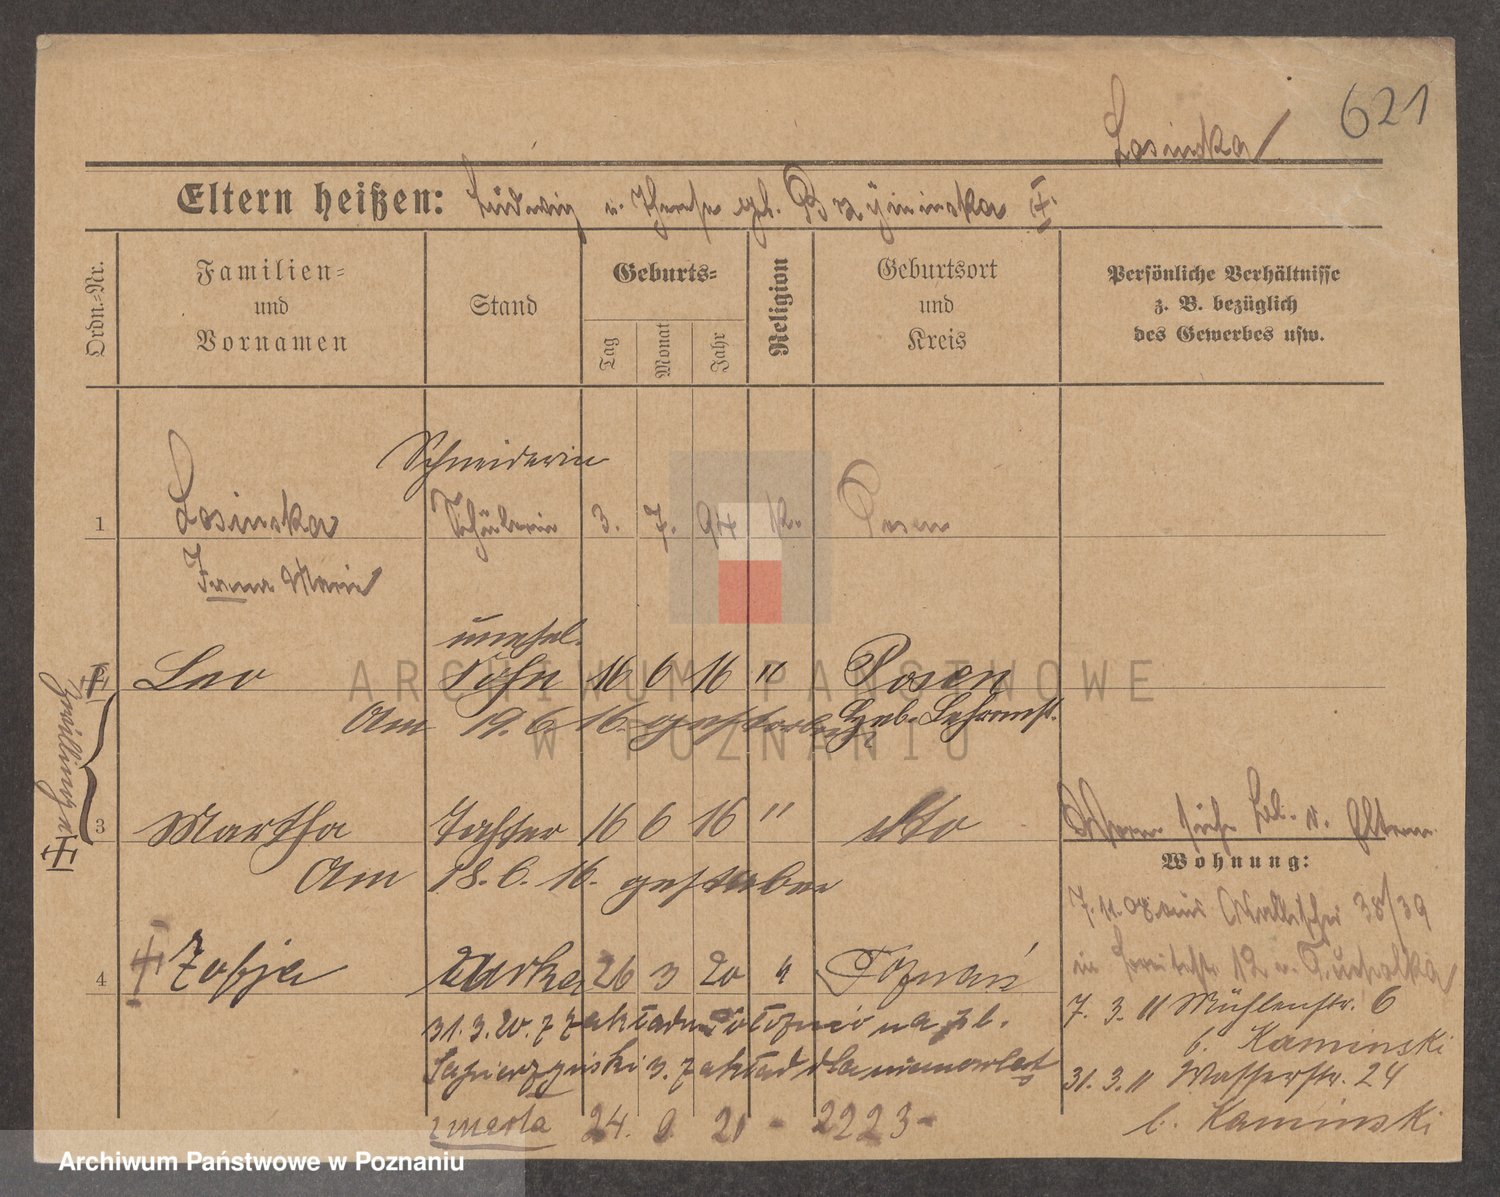 621
Losinska
Eltern heißen: Ludwig u. Therese geb.
Ordn.-Nr.
Familien-
und
Vornamen
Stand
Geburts-
Tag
Monat
Jahr
Religion
Geburtsort
und
Kreis
Persönliche Verhältnisse
z. B. bezüglich
des Gewerbes usw.
Schneiderin
1 Losinska Schülerin 3. 7. 94 k. Posen
Marie
unehel.
Leo Sohn 16 6 16 " Posen
Am 19. 6. 16. gestorben Geb. Lehranst.
Zwillinge
3 Martha Tochter 16 6 16 " dto
Am 18. 6. 16. gestorben
siehe v. Eltern
Wohnung:
7. 11. 08 aus Wallischei 38/39
in Breitestr. 12
4 Zofja córka 26 3 20 " Poznań
7. 3. 11 Mühlenstr. 6
b. Kaminski
31. 3. 20. z zakładu położnic na pl.
Sapieżyński 3. zakład dla niemowląt
31. 3. 11 Wasserstr. 24
b. Kaminski
zmarła 24. 20 - 2223 -
ARCHIWUM PAŃSTWOWE
W POZNANIU
Archiwum Państwowe w Poznaniu